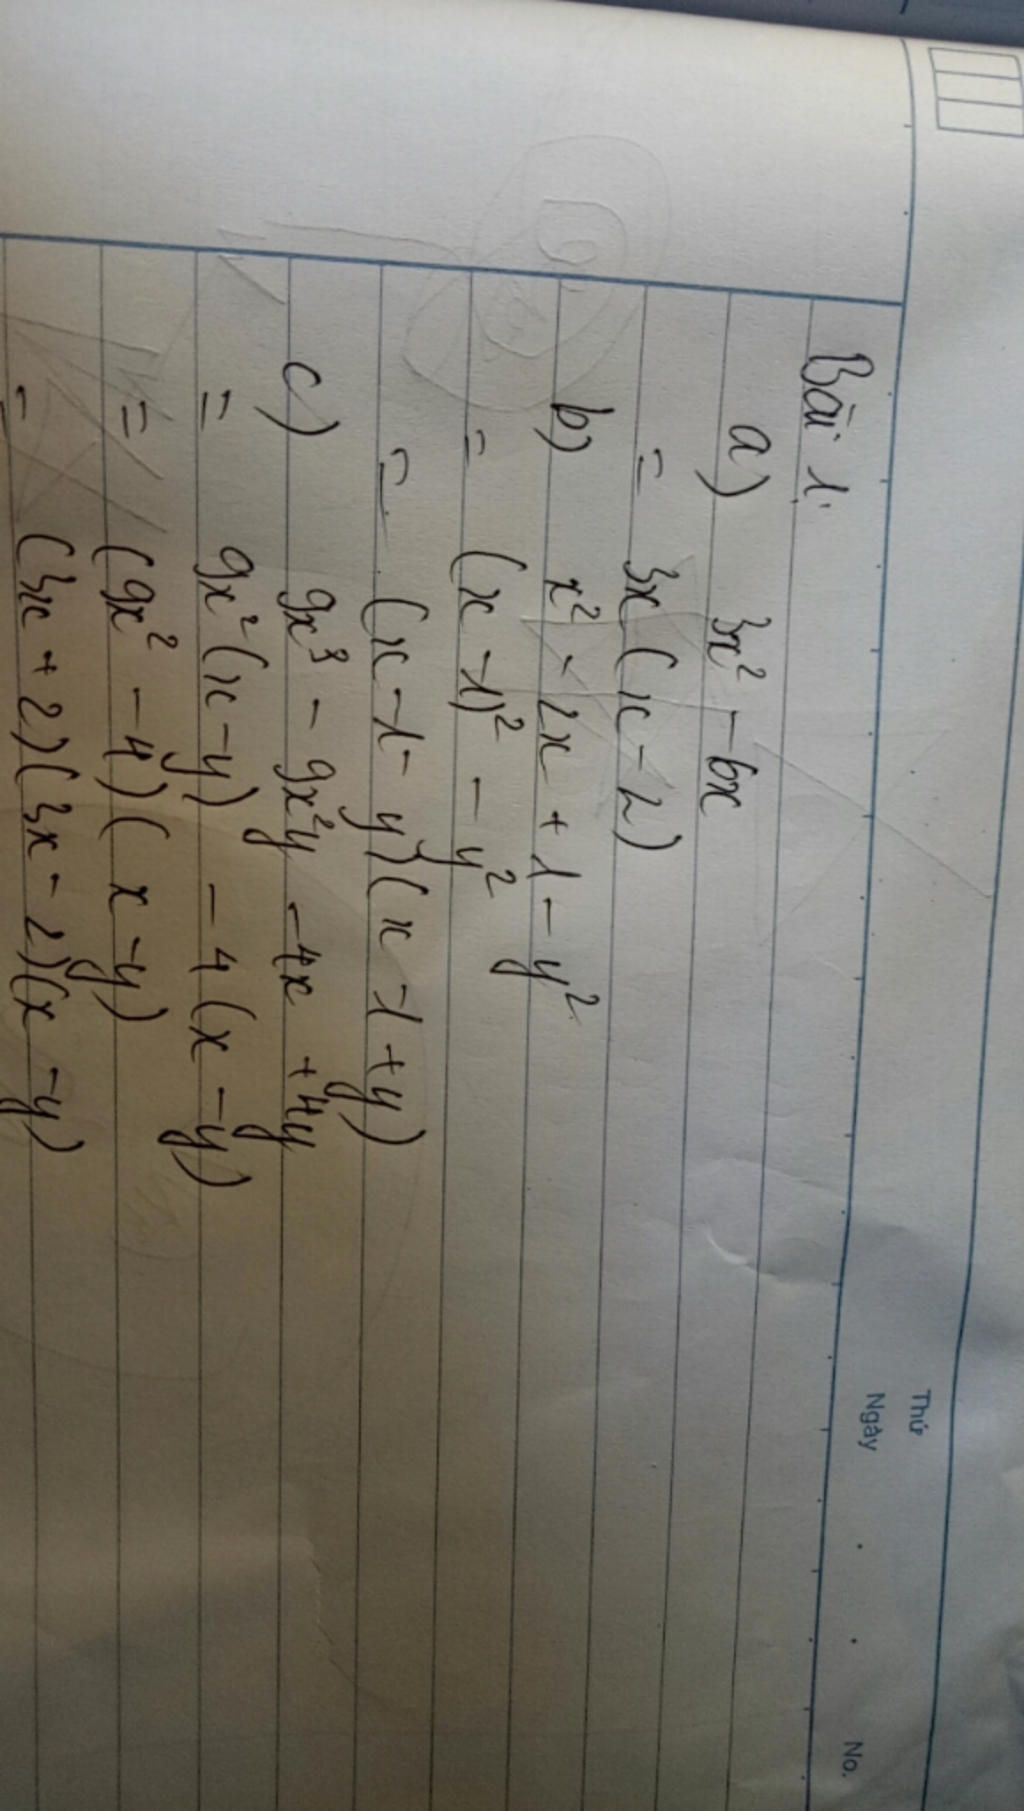 Thứ
Ngày No.
Bài 1:
a) 3x² - 6x
= 3x(x - 2)
b) x² - 2x + 1 - y²
= (x - 1)² - y²
= (x - 1 - y)(x - 1 + y)
c) 9x³ - 9x²y - 4x + 4y
= 9x²(x - y) - 4(x - y)
= (9x² - 4)(x - y)
= (3x + 2)(3x - 2)(x - y)